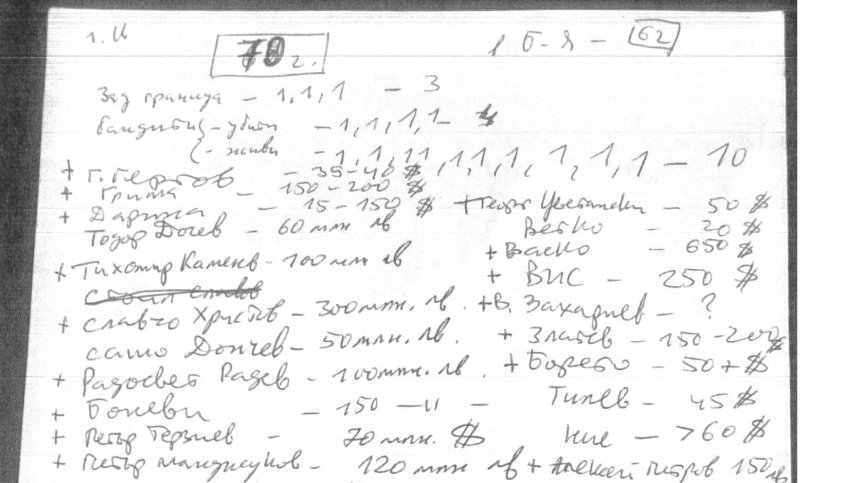 1. И
70 г.
1 Б-я – 62
Зад граница – 1,1,1 – 3
Бандити – убити – 1,1,1,1 – 4
– живи – 1,1,1,1,1,1,1,1,1,1 – 10
+ Г. Гергов – 35-40 $
+ Гриша – 150-200 $
+ Дарина – 15-150 $
Тодор Дочев – 60 млн лв
+ Тихомир Каменов – 100 млн лв
+ Славчо Христов – 300 млн. лв.
Сашо Дончев – 50 млн. лв.
+ Радосвет Радев – 100 млн. лв.
+ Боневи – 150 – 11 –
+ Петър Терзиев – 70 млн. $
+ Петър Манджуков – 120 млн лв
+ Георг Цветански – 50 $
Ветко – 20 $
+ Васко – 650 $
+ ВИС – 250 $
+ В. Захариев – ?
+ Златев – 150-200 $
+ Борето – 50 + $
Тилев – 45 $
Ние – >60 $
+ Алексей Петров 150 лв